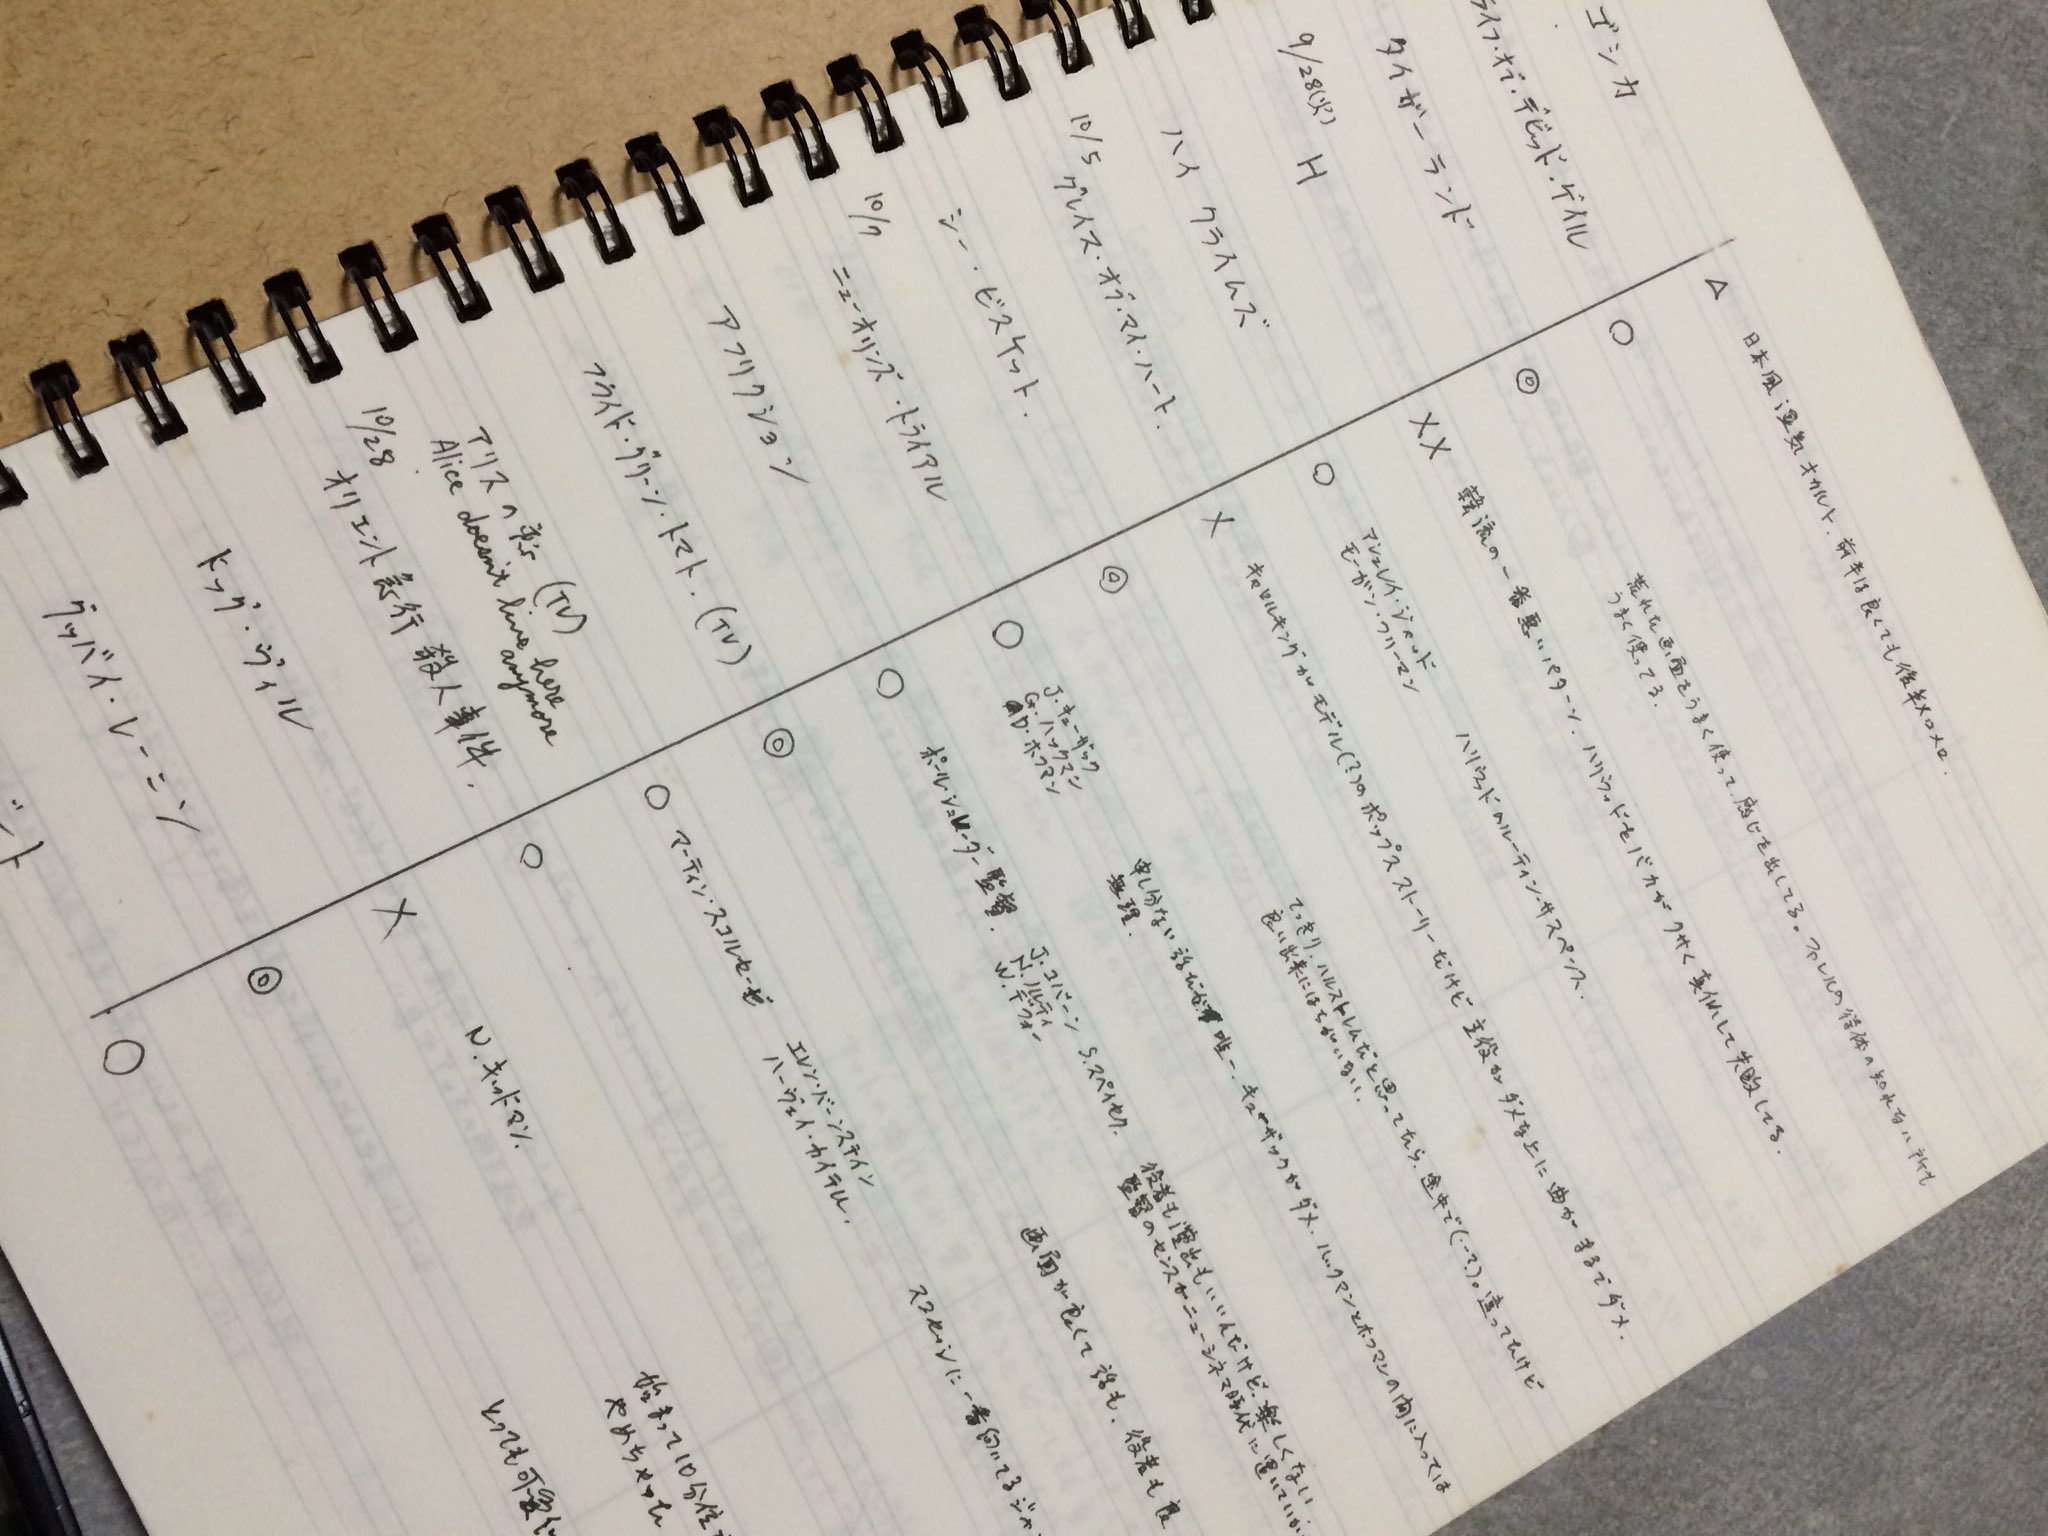 ゴシカ △ 日本風湿気オカルト、前半は良くても後半メロメロ.
ライフ・オブ・デビッド・ゲイル ○
荒れた画面をうまく使って、感じを出してる。ファレルの得体の知れない所も
うまく使ってる.
タイガーランド ◎
9/28(火) H ×× 韓流の一番悪いパターン. ハリウッドをバカがクサく真似して失敗してる.
ハイ クライムズ ○
アシュレイ・ジャッド
モーガン・フリーマン
ハリウッドのルーティン・サスペンス.
10/5 グレイス・オブ・マイ・ハート. × キャロルキングがモデル(?)のポップスストーリーだけど 主役がダメな上に曲がまるでダメ.
てっきり、ハルストレムだと思ってたら、途中で(..?)。違ってたけど
良い出来にはちがいない.
シー・ビスケット. ◎
10/7 ニューオリンズ・トライアル ○
J. キューザック
G. ハックマン
D. ホフマン
申し分ない話だが唯一、キューザックがダメ. ハックマンとホフマンの間に入っては
無理.
アフリクション ○ ポールシュレーダー監督.
J. コバーン S. スペイセク.
N. ノルティ
W. デフォー
役者も演出もいいんだけど、楽しくない
監督のセンスがニューシネマ時代に
フライド・グリーン・トマト. (TV) ◎
画面が良くて話も、役者も良
アリスの恋 (TV) ○ マーティン・スコルセーゼ
Alice doesn't live here
anymore
エレン・バーンスティン
ハーヴェイ・カイテル.
スコセッシに一番向いてるジャ
10/28 オリエント急行殺人事件. ○
ドッグ・ヴィル × N. キッドマン.
始まって10分位
やめちゃった
グッバイ・レーニン ◎
とっても可愛い
○